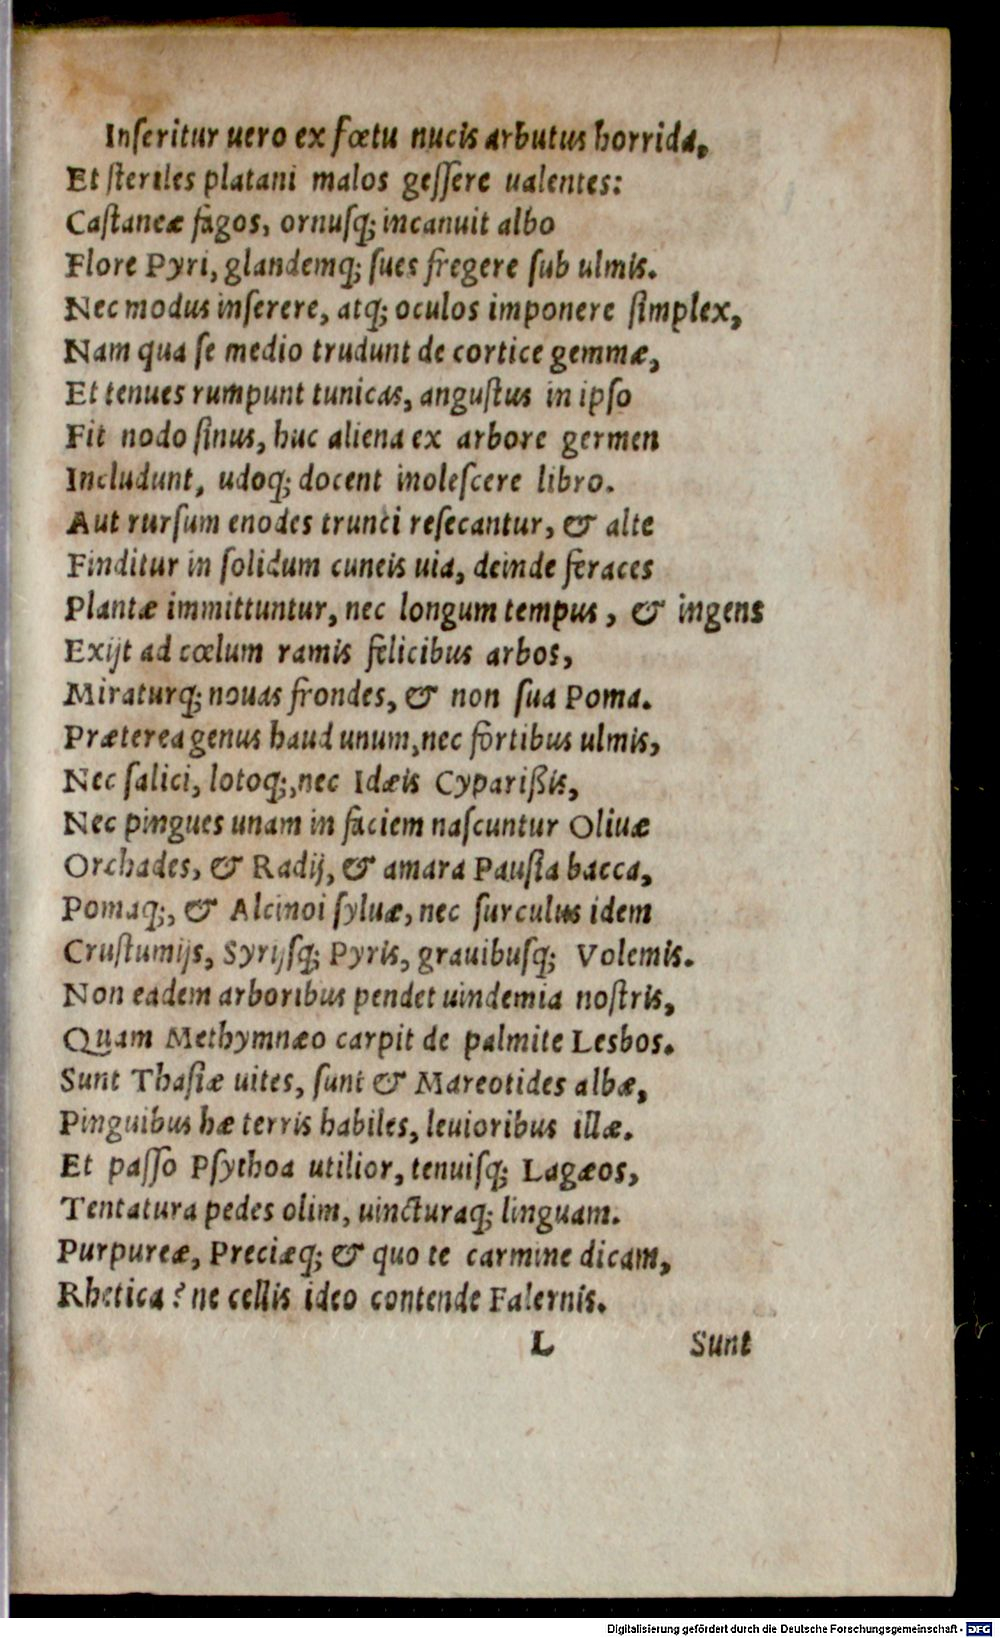 Inſeritur uero ex fœtu nucis arbutus horrida,
Et ſteriles platani malos geſſere ualentes:
Caſtaneæ fagos, ornuſq; incanuit albo
Flore Pyri, glandemq; ſues fregere ſub ulmis.
Nec modus inſerere, atq; oculos imponere ſimplex,
Nam qua ſe medio trudunt de cortice gemmæ,
Et tenues rumpunt tunicas, anguſtus in ipſo
Fit nodo ſinus, huc aliena ex arbore germen
Includunt, udoq; docent inoleſcere libro.
Aut rurſum enodes trunci reſecantur, & alte
Finditur in ſolidum cuneis uia, deinde feraces
Plantæ immittuntur, nec longum tempus, & ingens
Exijt ad cœlum ramis felicibus arbos,
Miraturq; nouas frondes, & non ſua Poma.
Præterea genus haud unum, nec fortibus ulmis,
Nec ſalici, lotoq;, nec Idæis Cyparißis,
Nec pingues unam in faciem naſcuntur Oliuæ
Orchades, & Radij, & amara Pauſia bacca,
Pomaq;, & Alcinoi ſyluæ, nec ſurculus idem
Cruſtumijs, Syrijſq; Pyris, grauibuſq; Volemis.
Non eadem arboribus pendet uindemia noſtris,
Quam Methymnæo carpit de palmite Lesbos.
Sunt Thaſiæ uites, ſunt & Mareotides albæ,
Pinguibus hæ terris habiles, leuioribus illæ.
Et paſſo Pſythoa utilior, tenuiſq; Lagæos,
Tentatura pedes olim, uincturaq; linguam.
Purpureæ, Preciæq; & quo te carmine dicam,
Rhetica? ne cellis ideo contende Falernis.
L Sunt
Digitalisierung gefördert durch die Deutsche Forschungsgemeinschaft - DFG